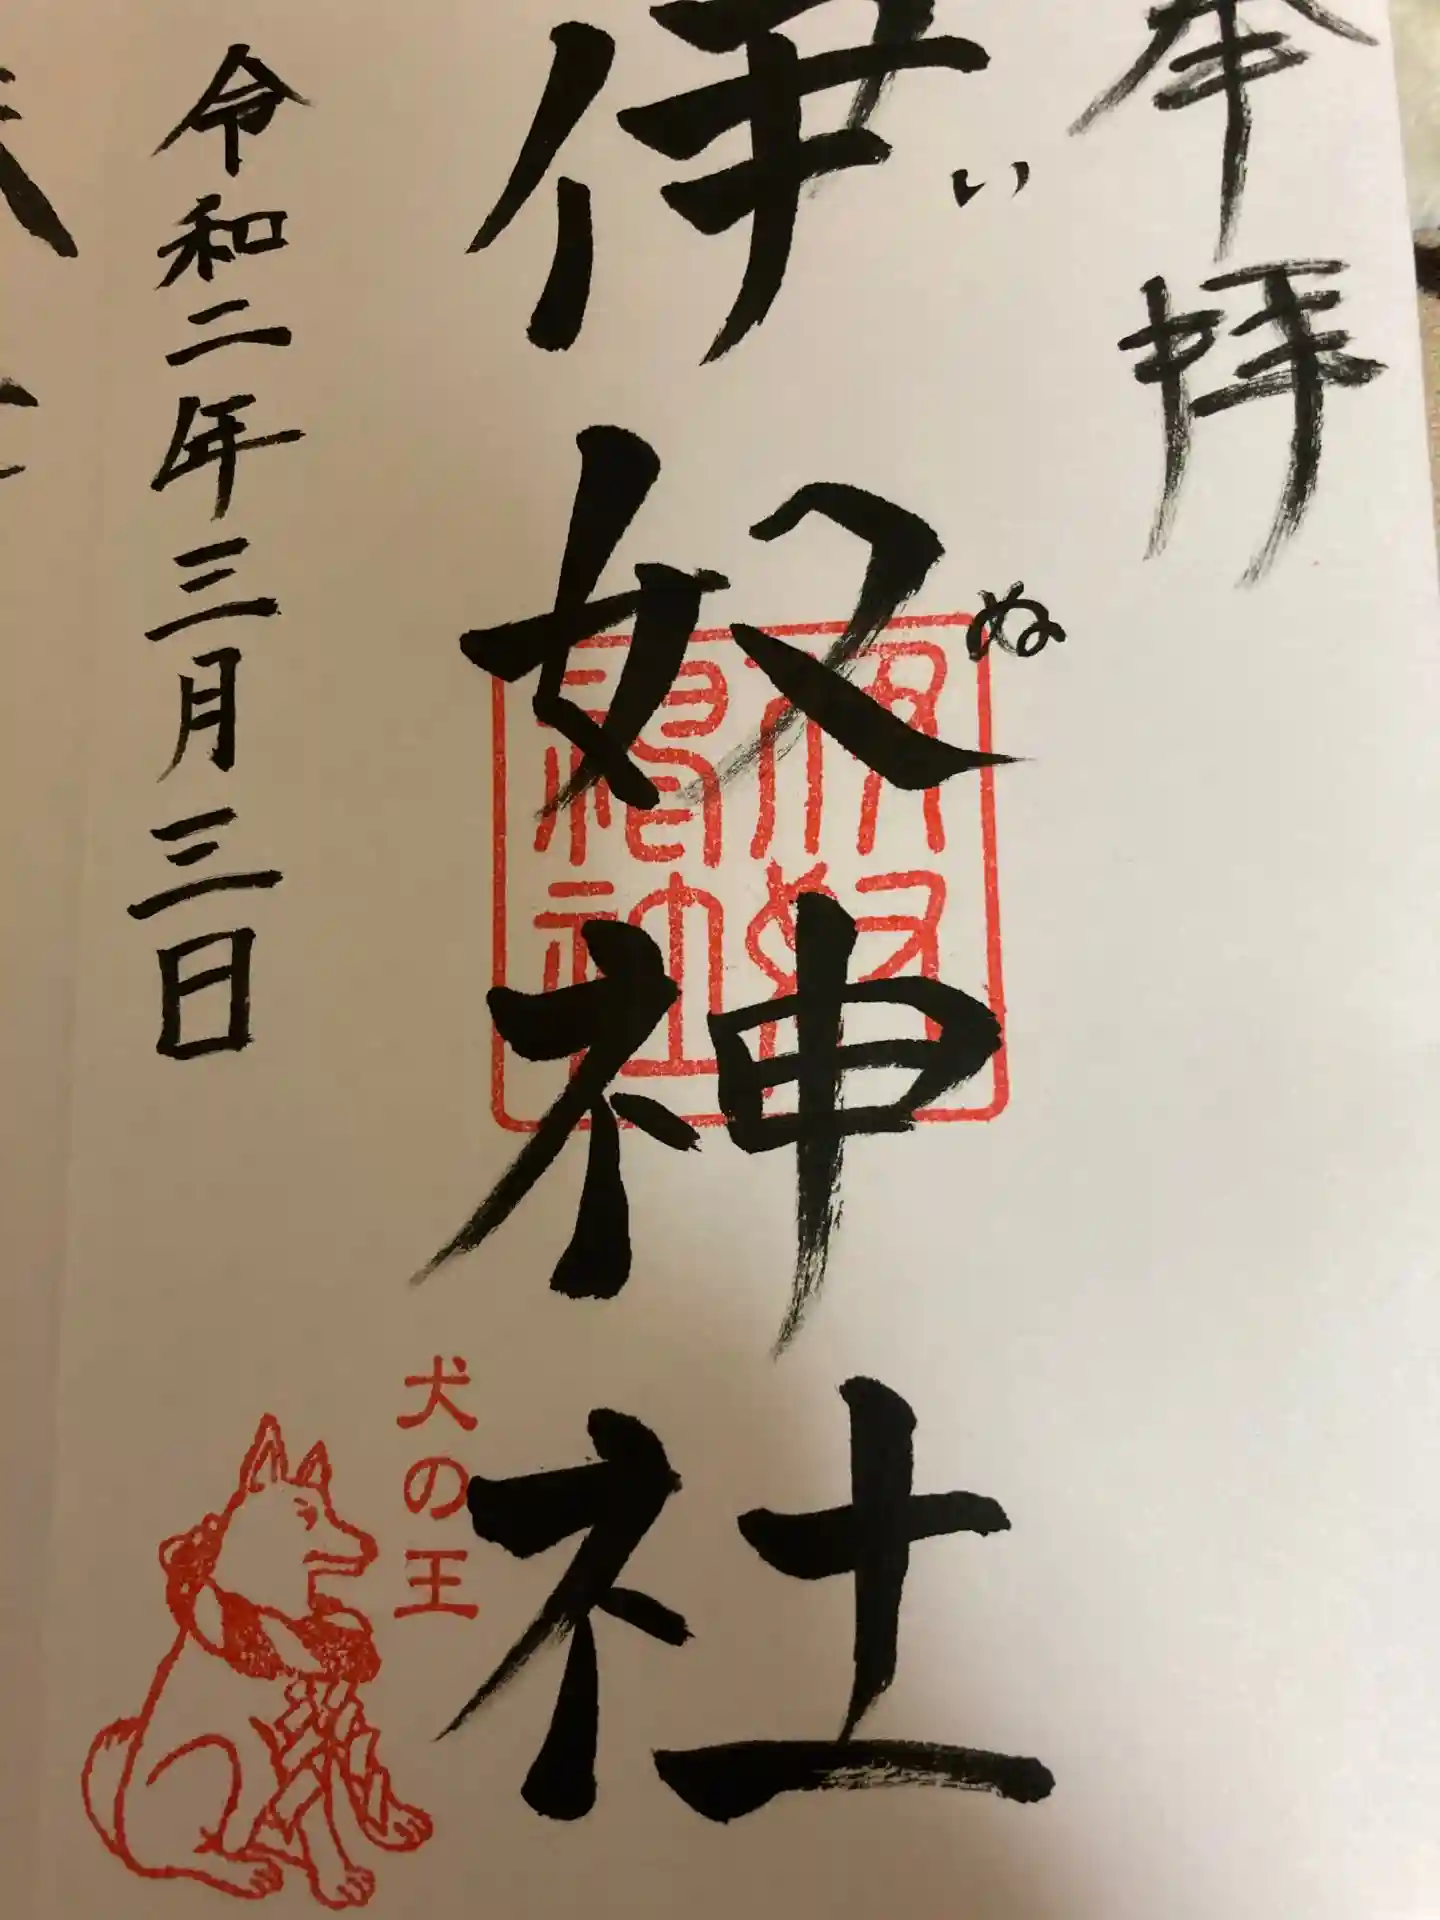 奉拝
伊奴神社
い
ぬ
伊奴神社
犬の王
令和二年三月三日